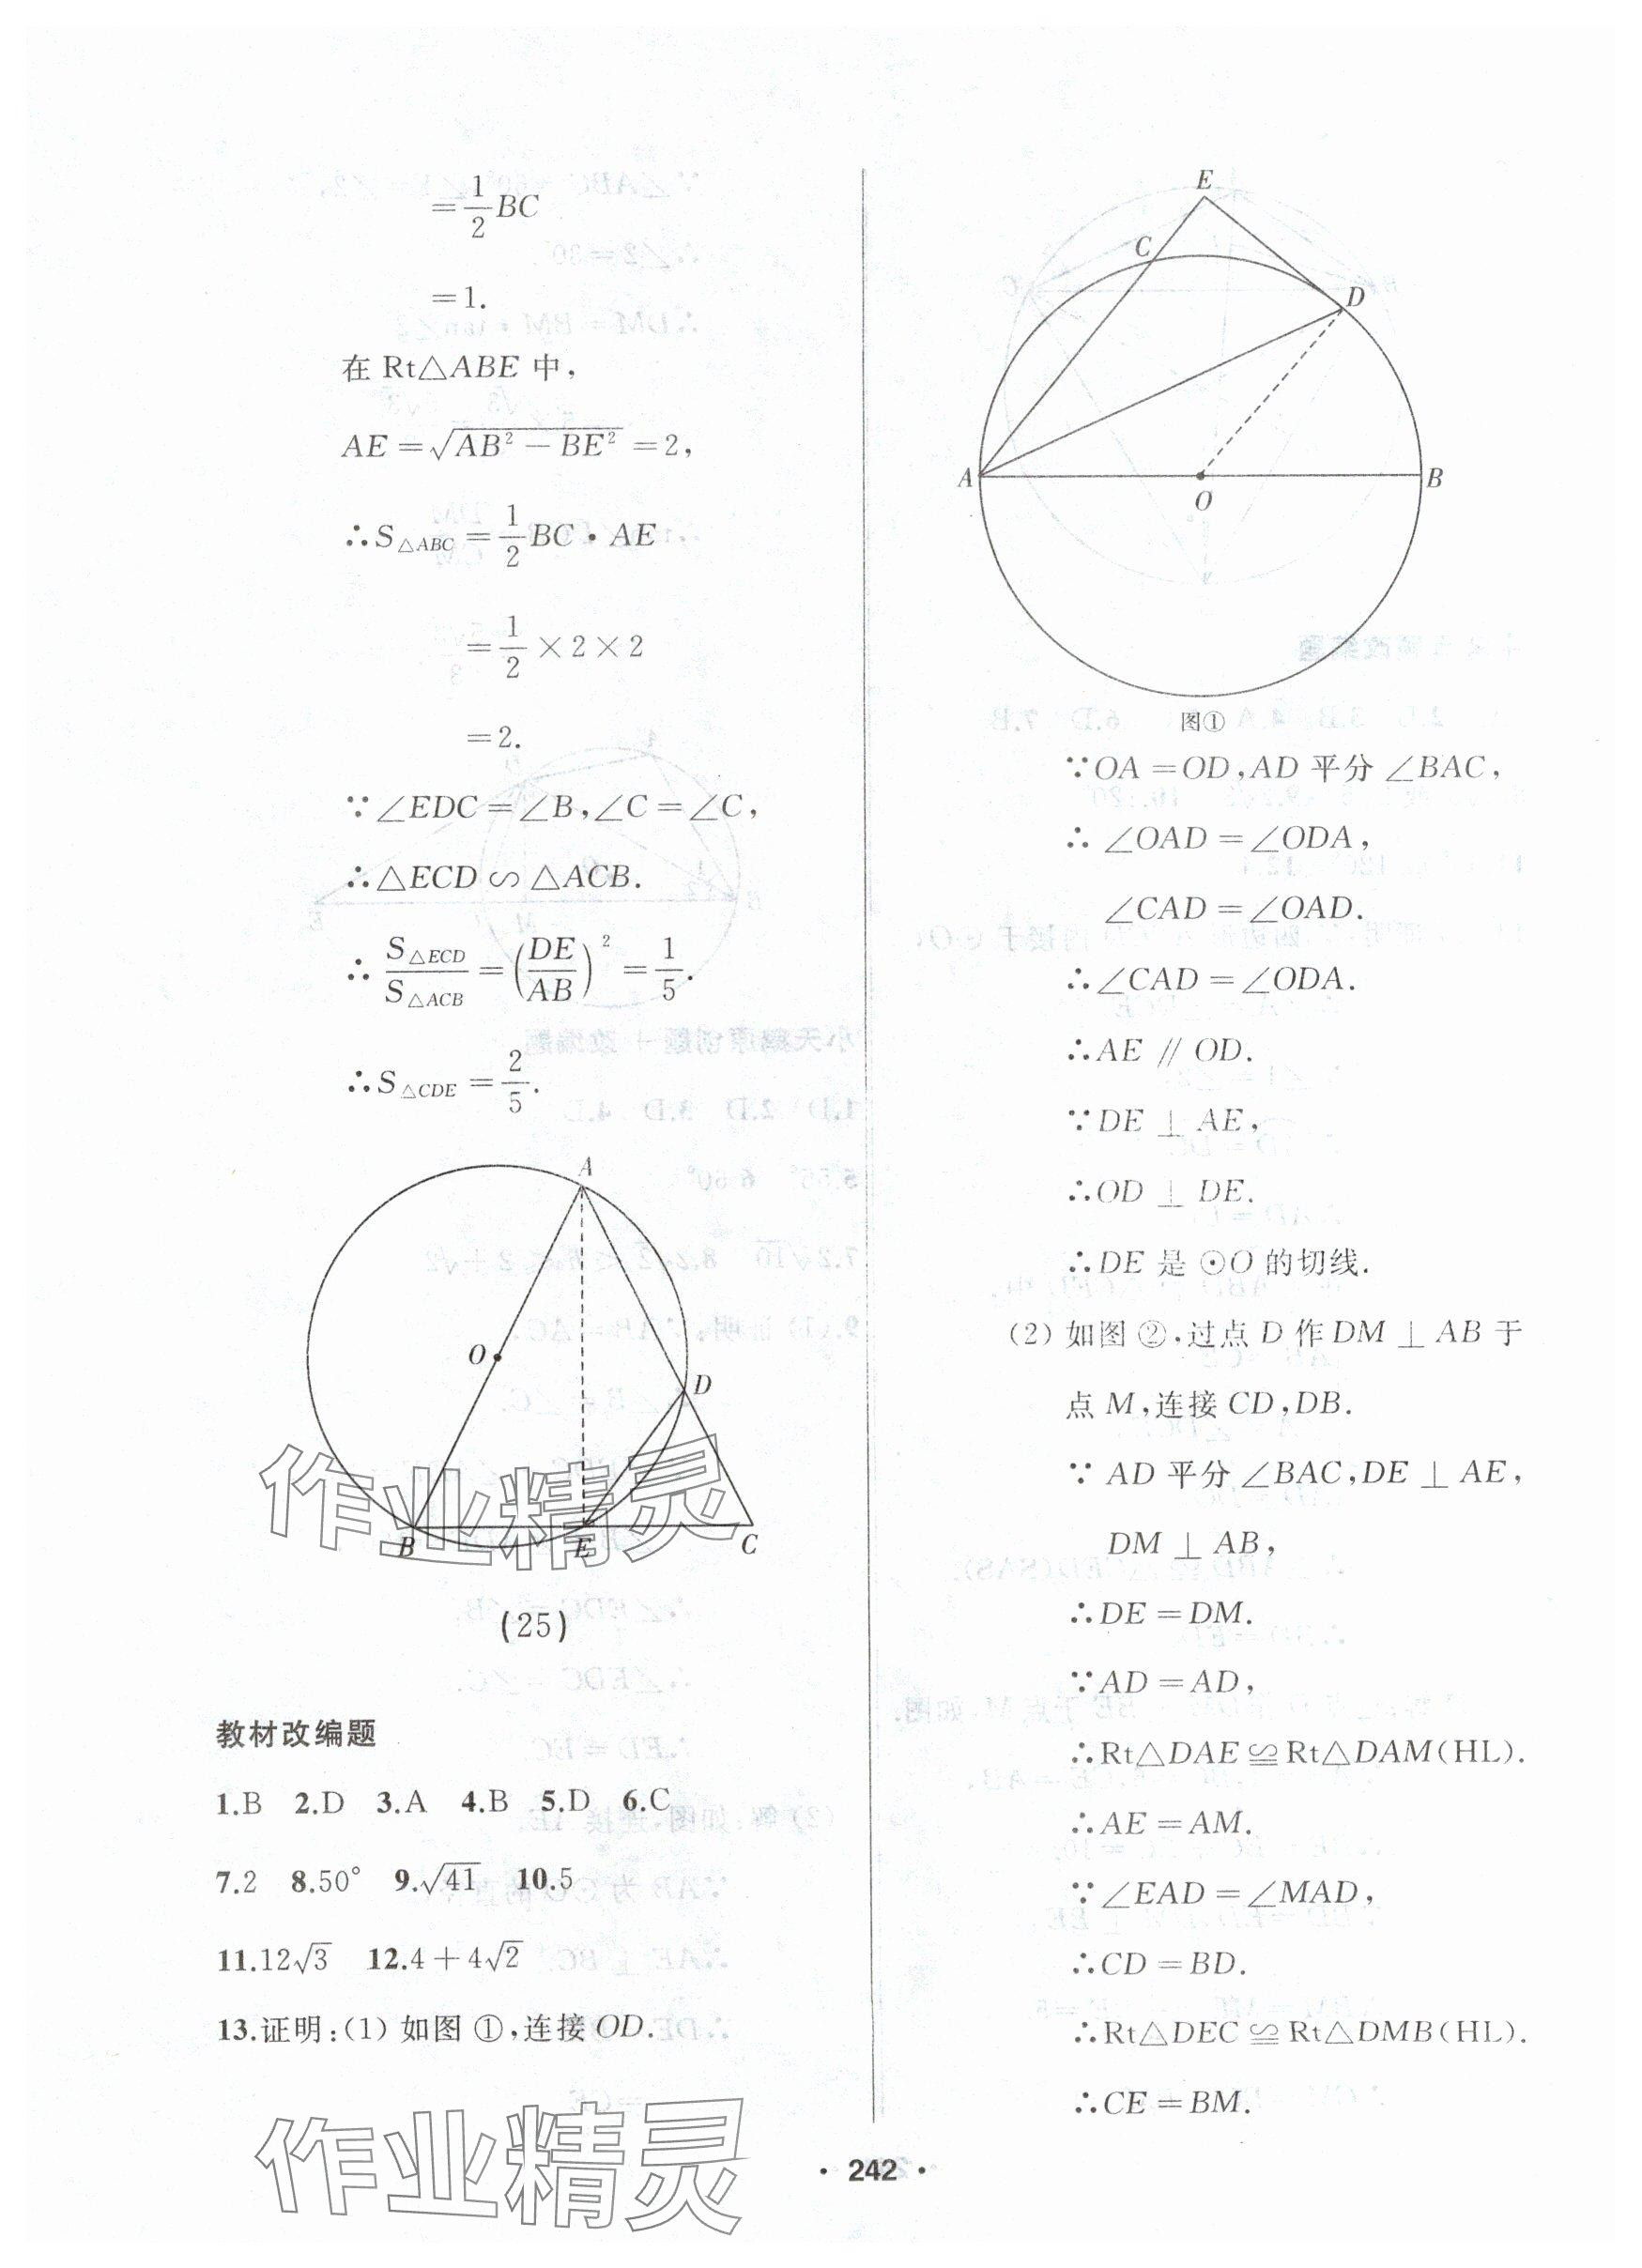 =1/2 BC
=1.
在 Rt△ABE 中,
AE=√(AB²-BE²)=2,
∴S△ABC=1/2 BC·AE
=1/2×2×2
=2.
∵∠EDC=∠B,∠C=∠C,
∴△ECD∽△ACB.
∴S△ECD/S△ACB=(DE/AB)²=1/5.
∴S△CDE=2/5.
A
O
D
B
E
C
(25)
教材改编题
1.B 2.D 3.A 4.B 5.D 6.C
7.2 8.50° 9.√41 10.5
11.12√3 12.4+4√2
13.证明:(1) 如图 ①,连接 OD.
E
C
D
A
O
B
图①
∵OA=OD,AD 平分 ∠BAC,
∴ ∠OAD=∠ODA,
∠CAD=∠OAD.
∴∠CAD=∠ODA.
∴AE // OD.
∵DE ⊥ AE,
∴OD ⊥ DE.
∴DE 是 ⊙O 的切线.
(2) 如图 ②,过点 D 作 DM ⊥ AB 于
点 M,连接 CD,DB.
∵ AD 平分 ∠BAC,DE ⊥ AE,
DM ⊥ AB,
∴DE=DM.
∵AD=AD,
∴Rt△DAE≌Rt△DAM(HL).
∴AE=AM.
∵∠EAD=∠MAD,
∴CD=BD.
∴Rt△DEC≌Rt△DMB(HL).
∴CE=BM.
作业精灵
作业精灵
· 242 ·